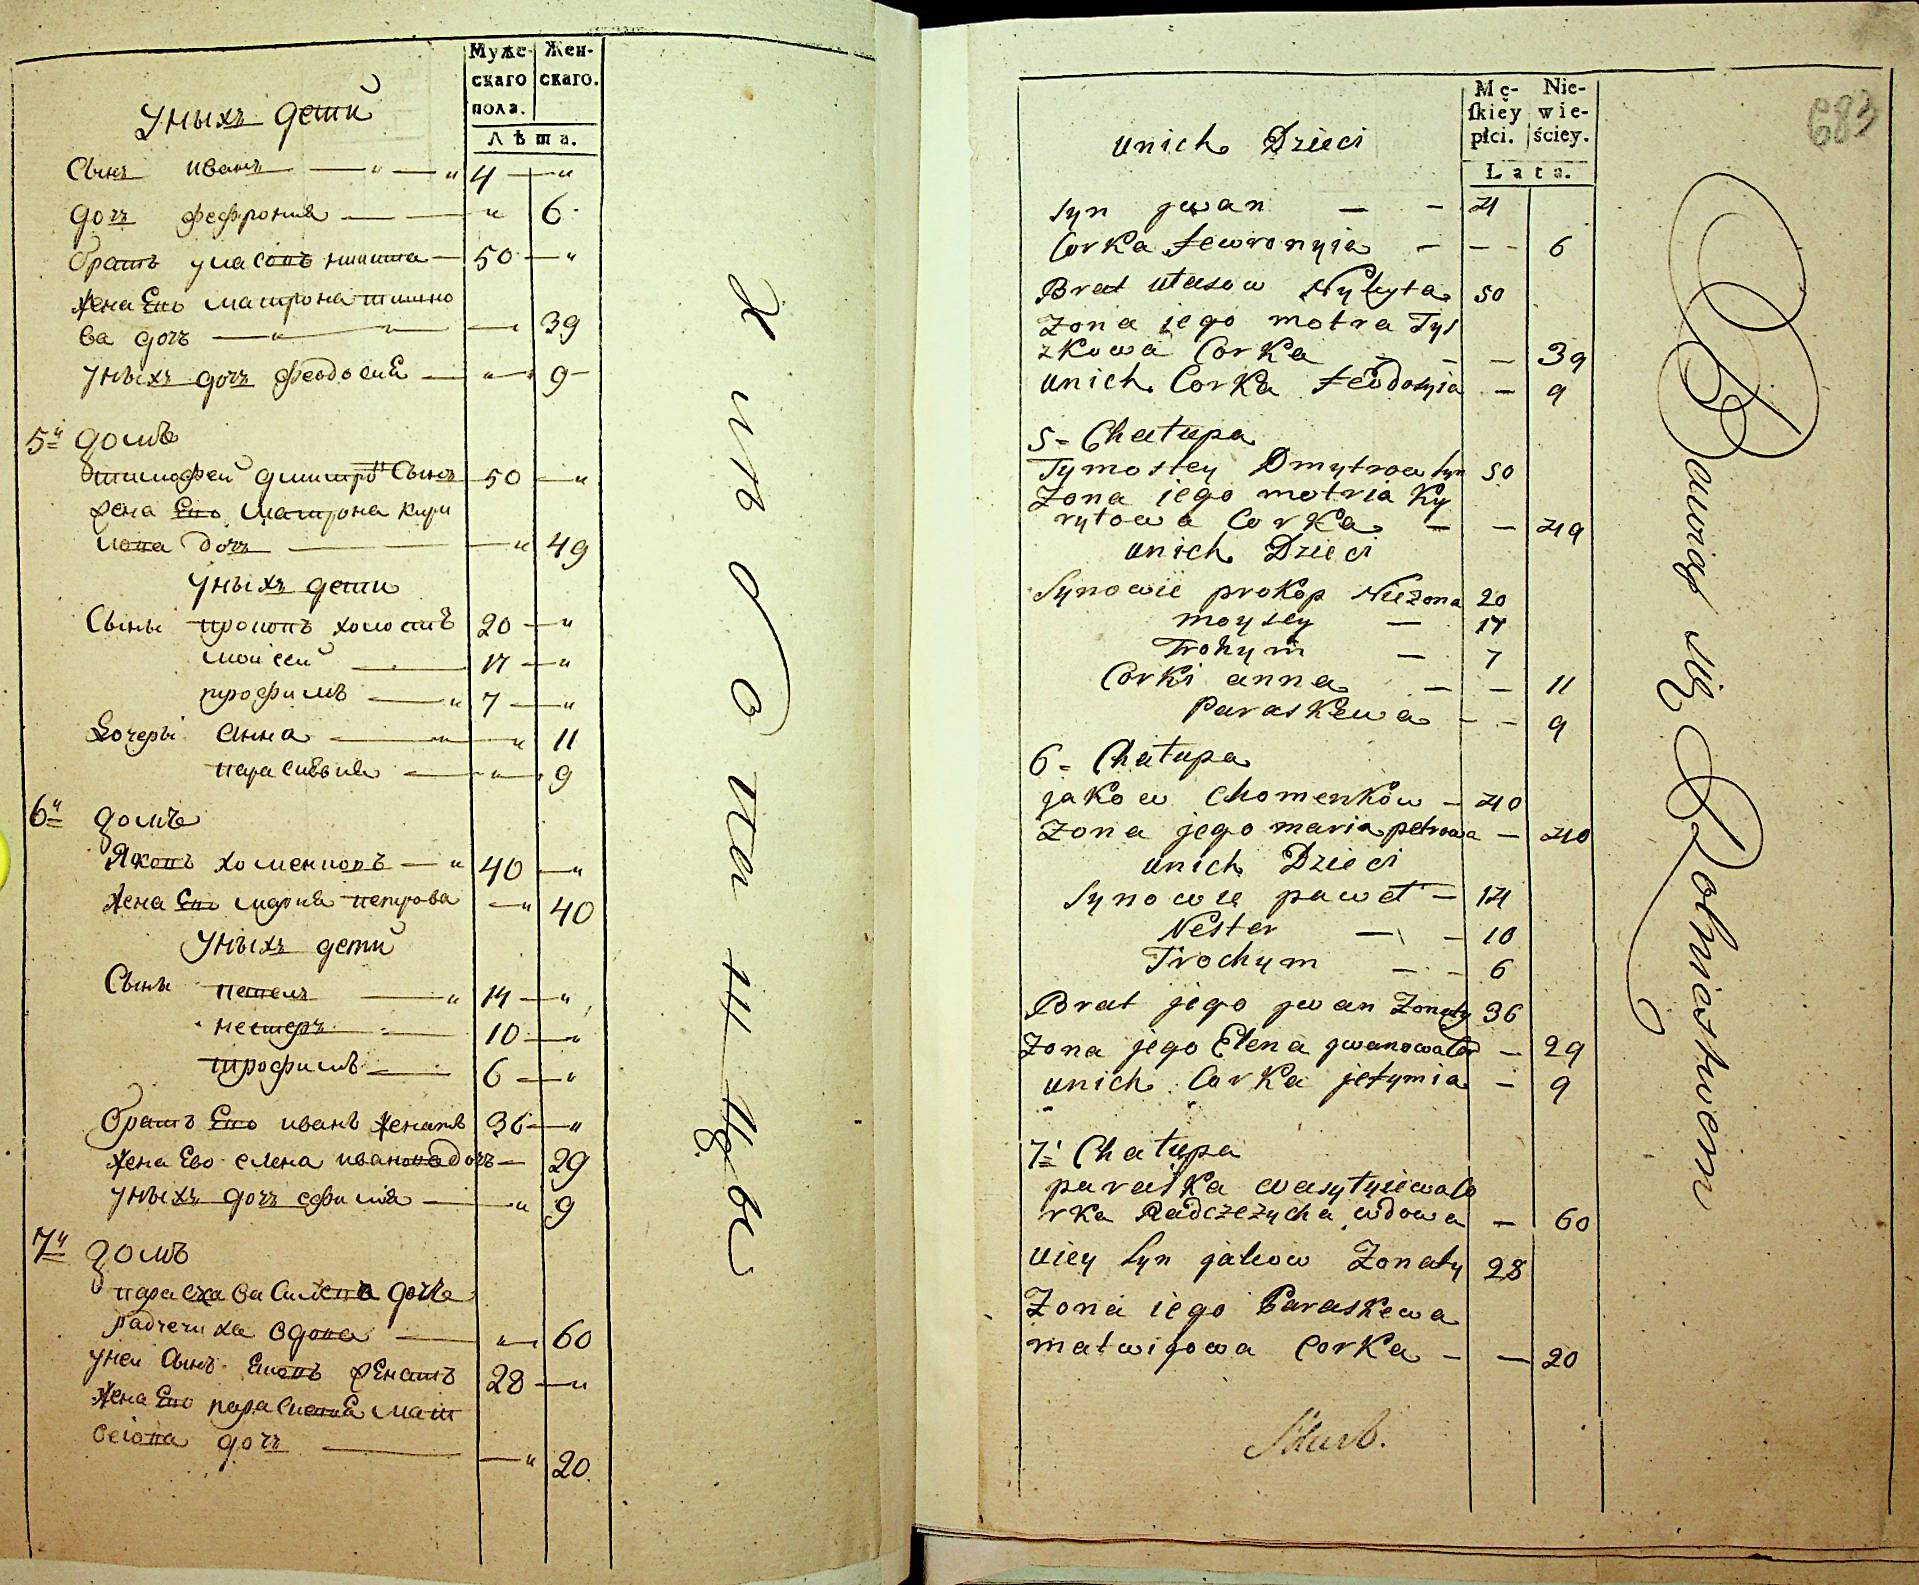 Муже-
скаго
пола.
Жен-
скаго.
Лѣта.
Уныхъ дети
Сынъ Иванъ 4
дочъ Феврониѧ 6
братъ Никита 50
жена Ево Матрона Тишко
ва дочъ 39
Уныхъ дочъ Феодосиѧ 9
5й домъ
Тимофей Дмитровъ Сынъ 50
жена Ево Матрона Кири
лова дочъ 49
Уныхъ дети
Сыны Прокопъ холостъ 20
Моисей 17
Трофимъ 7
Дочери Анна 11
Парасковиѧ 9
6й домъ
Яковъ Хоменковъ 40
жена Ево Мариѧ Петрова 40
Уныхъ дети
Сыны Павелъ 14
Нестеръ 10
Трофимъ 6
братъ Ево Иванъ женатъ 36
жена Ево Елена Иванова дочъ 29
Уныхъ дочъ Ефимиѧ 9
7й домъ
Параска Василиева дочъ
Радчечиха вдова 60
Уней Сынъ Яковъ женатъ 28
жена Ево Парасковиѧ Мат
веiова дочъ 20
Хлѣбопашцы
Mę-
skiey
płci.
Nie-
wie-
ściey.
Lata.
683
unich Dzieci
Syn jwan 4
Corka fewronyia 6
Brat Ułasow Nykyta 50
Zona jego motra Tys
zkowa Corka 39
unich Corka feodosyia 9
5 - Chałupa
Tymofiey Dmytrow syn 50
Zona iego motria Ky
ryłowa Corka 49
unich Dzieci
Synowie prokop Niezona 20
moysey 17
Trohym 7
Corki anna 11
Paraskewa 9
6 - Chałupa
jakow Chomenkow 40
Zona jego maria petrowa 40
unich Dzieci
Synowie paweł 14
Nester 10
Trochym 6
Brat jego jwan Zonaty 36
Zona jego Elena jwanowa Cor 29
unich Corka jefymia 9
7 Chałupa
paraska wasylyiewa Co
rka Radczezycha wdowa 60
uiey Syn jakow Zonaty 28
Zona iego Paraskewa
matwiiowa Corka 20
Bawiąs się Rolniastwem